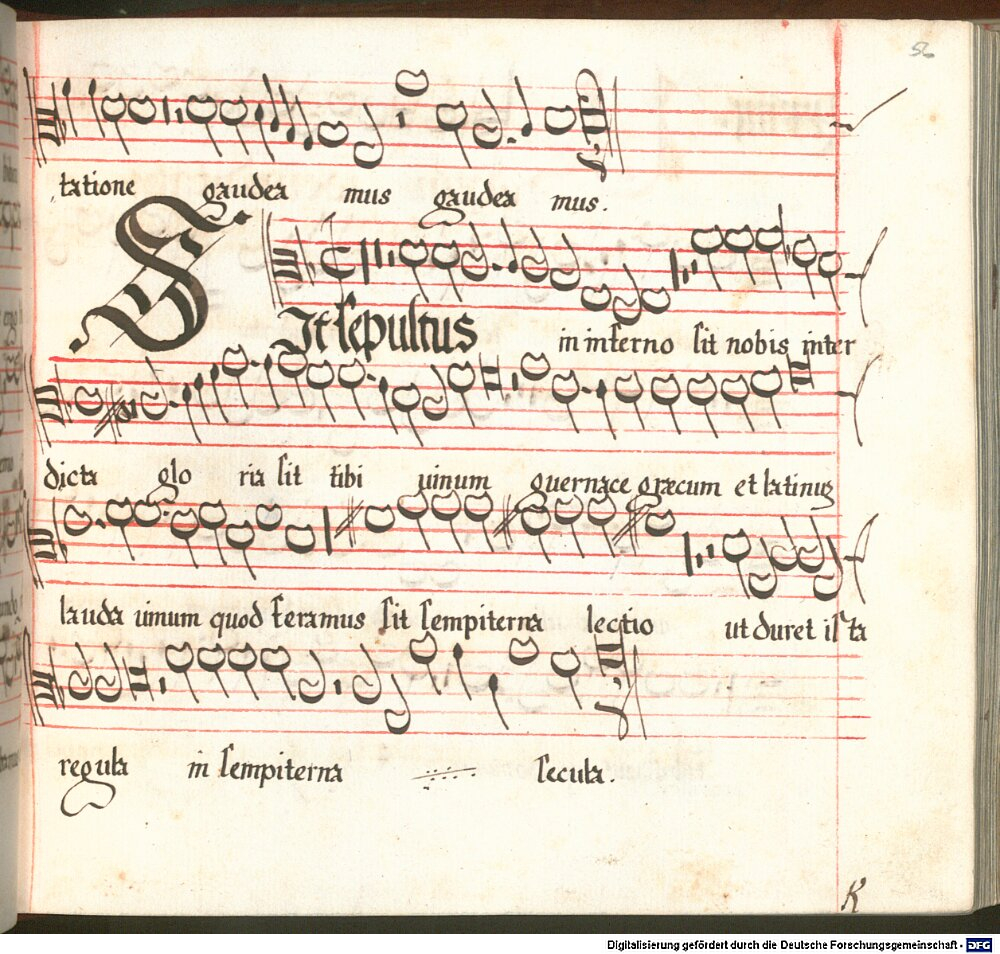 56
tatione gaudea mus gaudea mus.
Sit sepultus in inferno sit nobis inter
dicta glo ria sit tibi uinum guernace græcum et latinus
lauda uinum quod feramus sit sempiterna lectio ut duret ista
regula in sempiterna secula.
K
Digitalisierung gefördert durch die Deutsche Forschungsgemeinschaft - DFG